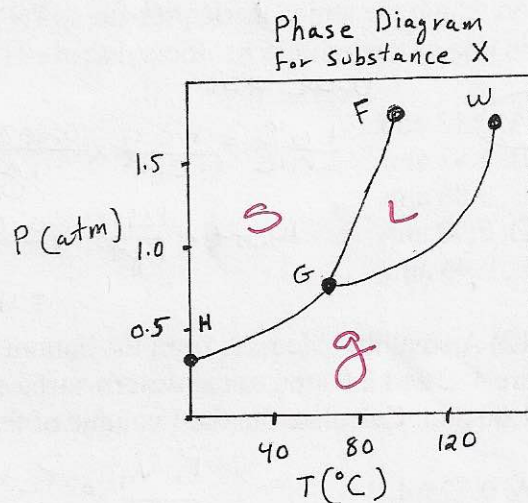 Phase Diagram
For Substance X
F
W
1.5
S
L
P (atm)
1.0
G
0.5
H
g
40
80
120
T (°C)